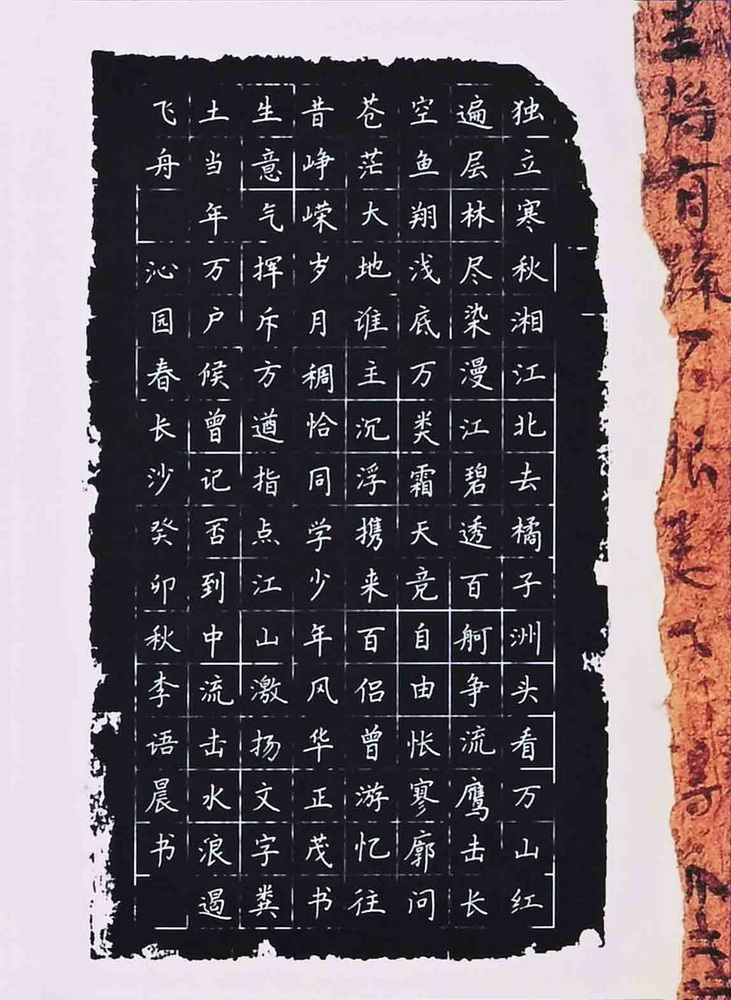 独立寒秋湘江北去橘子洲头看万山红
遍层林尽染漫江碧透百舸争流鹰击长
空鱼翔浅底万类霜天竞自由怅寥廓问
苍茫大地谁主沉浮携来百侣曾游忆往
昔峥嵘岁月稠恰同学少年风华正茂书
生意气挥斥方遒指点江山激扬文字粪
土当年万户候曾记否到中流击水浪遏
飞舟 沁园春长沙癸卯秋李语晨书